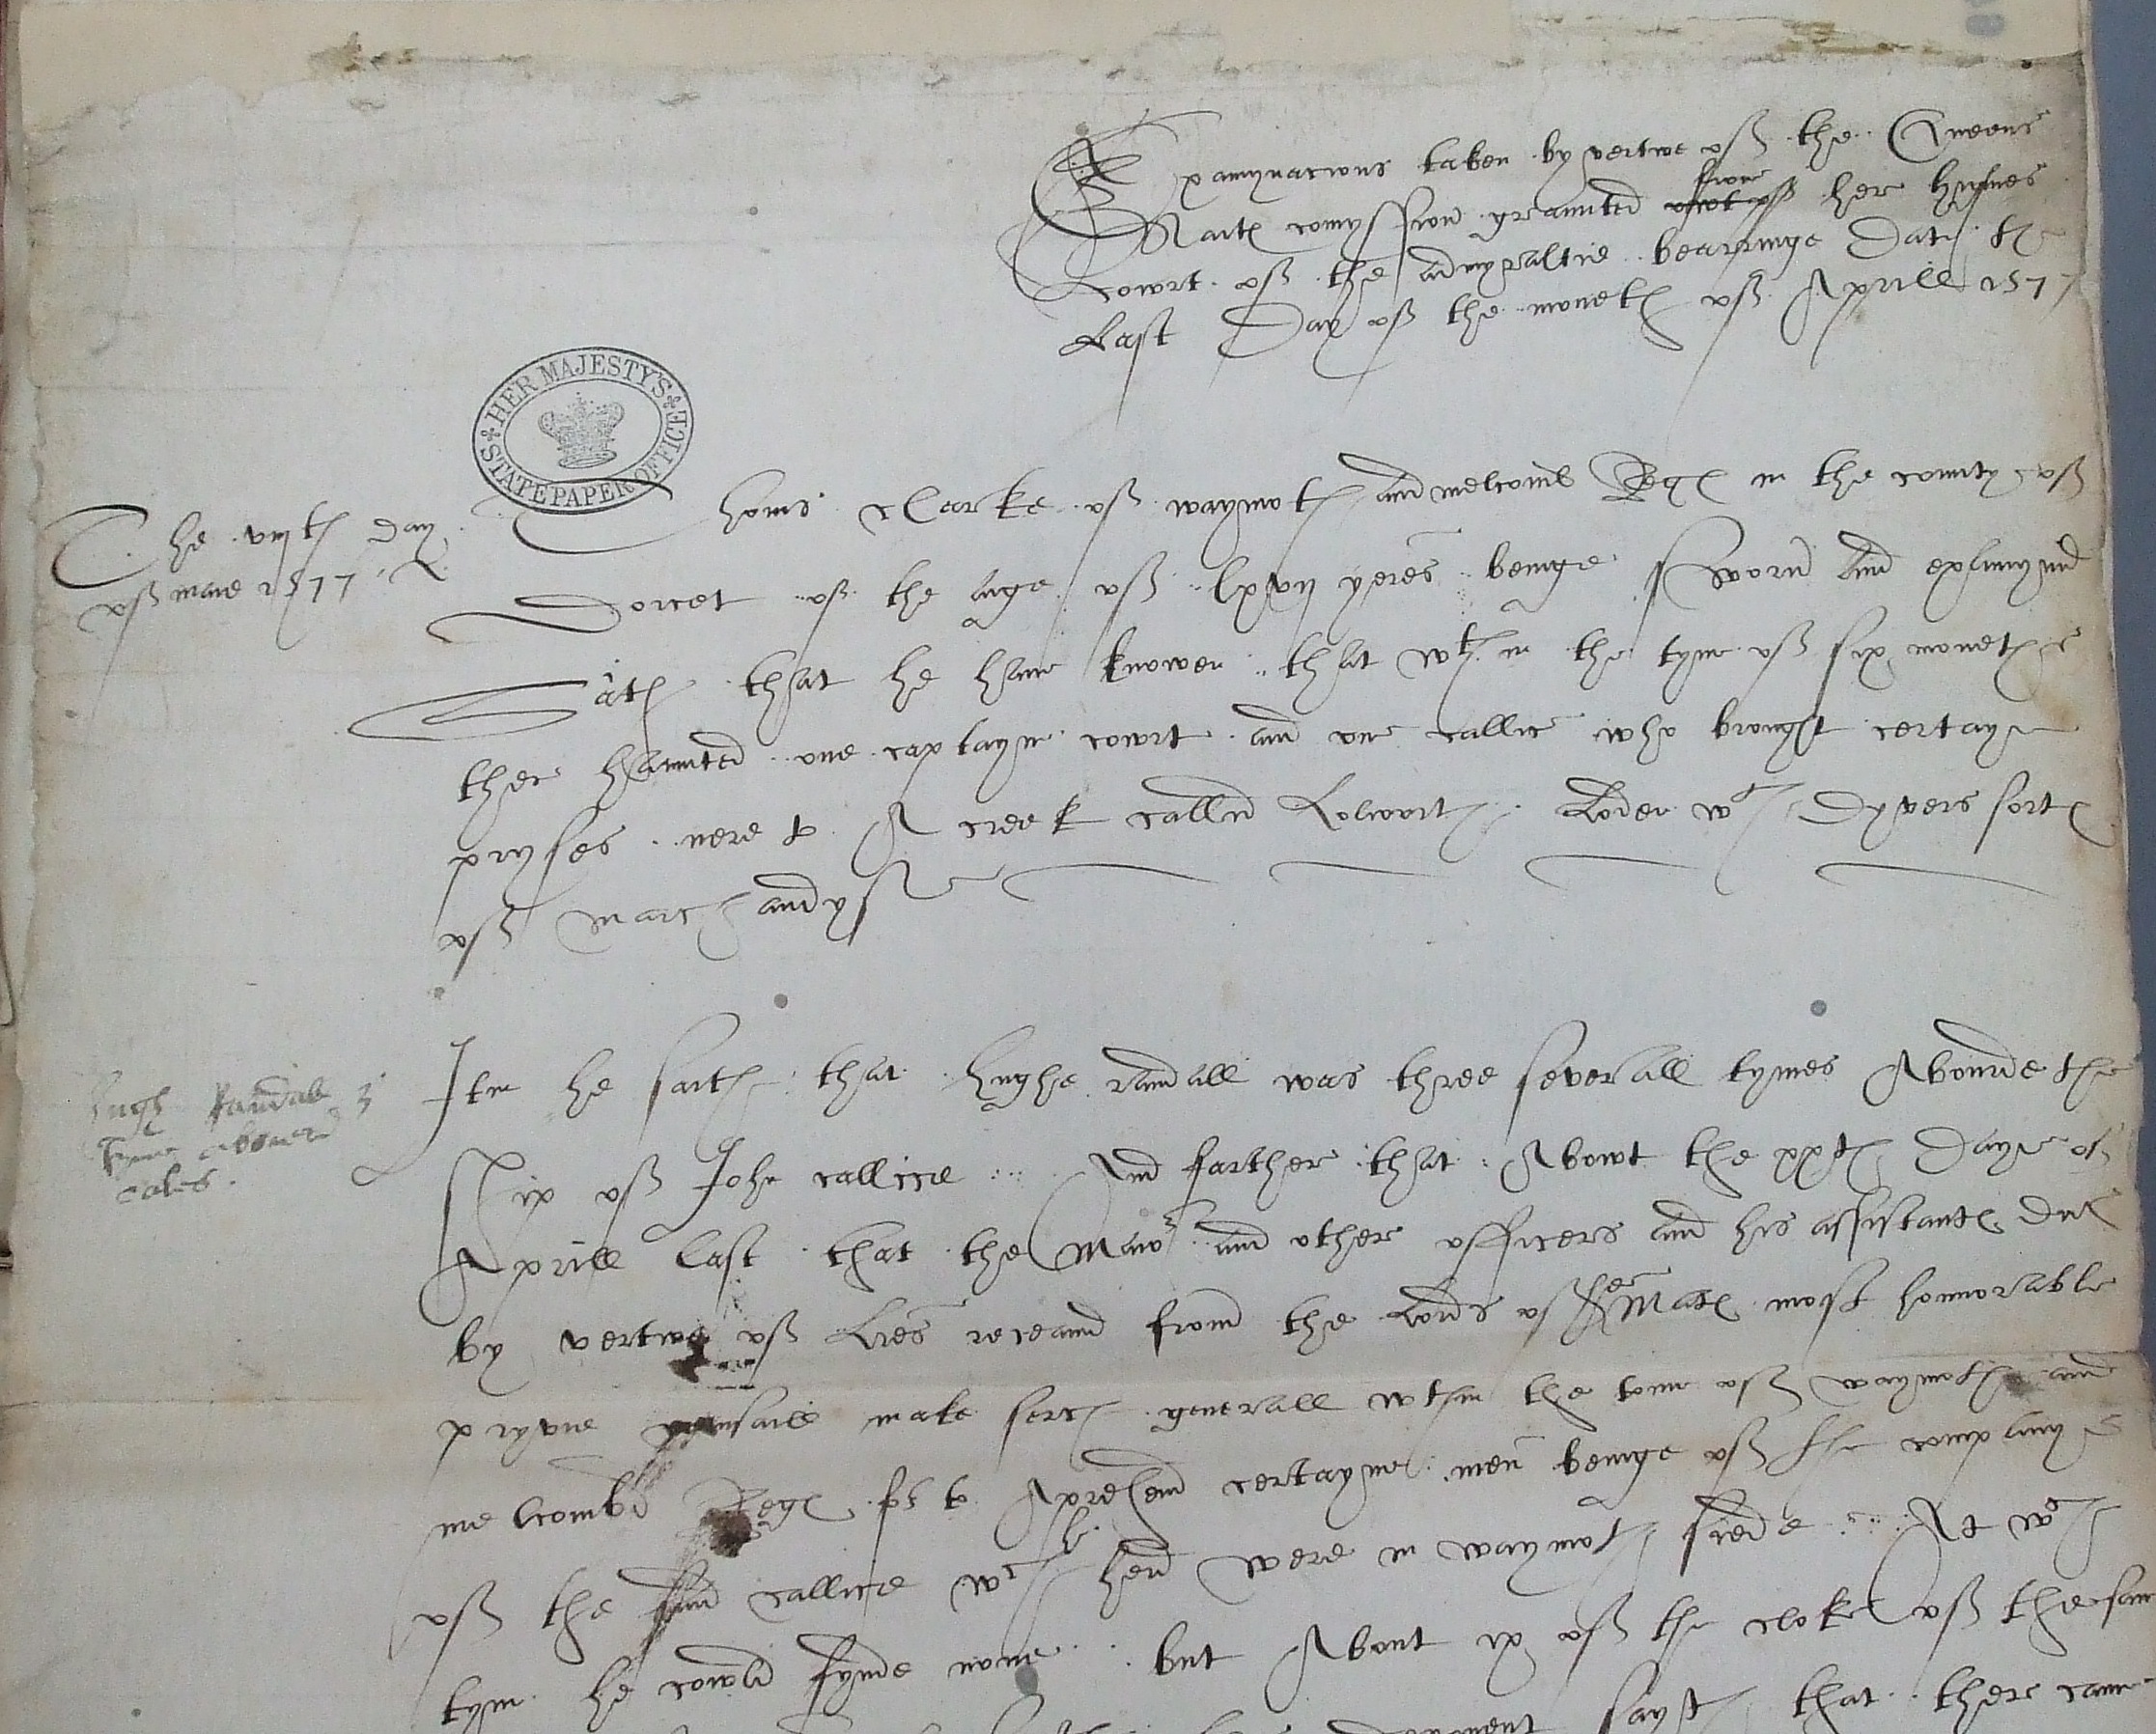 Examynacions taken by vertwe off the Queens
Maitis comyssion graunted from her hyghnes
Cowrt off the admyraltie bearinge Date the
Last Day off the moneth off Aprill 1577
HER MAJESTY'S STATE PAPER OFFICE
The viijth day
off maie 1577
Thoms Clarke off waymoth and melcomb Regis in the county off
Dorcet off the aige off lxvij yeres beinge sworn and examynid
Saith that he have knowen that wthin the tyme off six monethes
ther haunted one captayn cowrt and one callice who brought certayne
pryses nere to A creek callid Lolwurth Loden wth Dyvers sorts
off marchandyse
Hugh Randall 3
tymes abourd
Cales.
Itm he saith that hughe randall was three severall tymes Abourde the
Ship off John callice And farther that Abowt the xxth Daye off
Aprill last that the Maior and other officers and his assistants Did
by vertwe off Lres receavid from the Lords off her Matis most honnorable
pryvie counsaile make serch generall wthin the towne off waymoth and
melcombe Regis for to Aprehend certayne men beinge off the company
off the said callice wch he herd were in waymoth fiede At wch
tyme he cowld fynde none but About ix off the cloke off the same
deponent sayth that there came